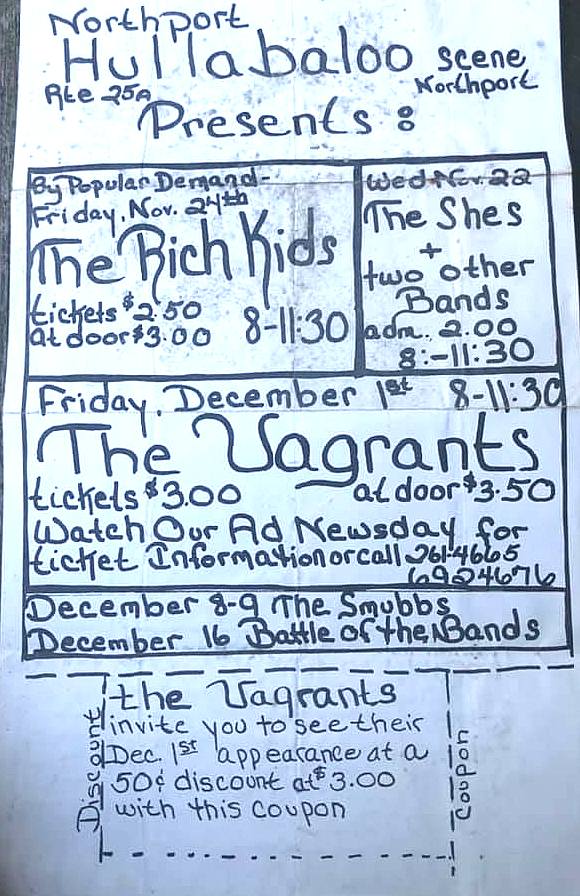 Northport
Hullabaloo scene
Rte 25A Northport
Presents :
By Popular Demand-
Friday, Nov. 24th
The Rich Kids
tickets $2.50
at door $3.00 8-11:30
Wed Nov. 22
The Shes
+
two other
Bands
adm. 2.00
8:-11:30
Friday, December 1st 8-11:30
The Vagrants
tickets $3.00 at door $3.50
Watch Our Ad Newsday for
ticket Information or call 261-4665
6924676
December 8-9 The Smubbs
December 16 Battle of the Bands
the Vagrants
invite you to see their
Dec. 1st appearance at a
50¢ discount at $3.00
with this coupon
Discount
Coupon